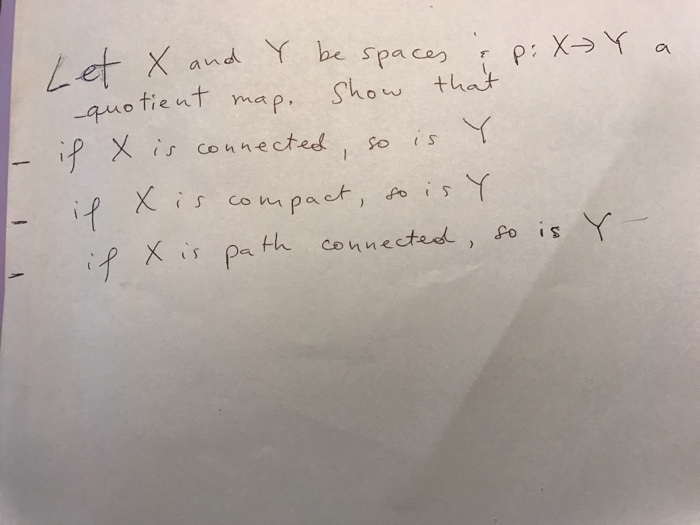 Let X and Y be spaces & p: X→Y a
quotient map. Show that
- if X is connected, so is Y
- if X is compact, so is Y
- if X is path connected, so is Y